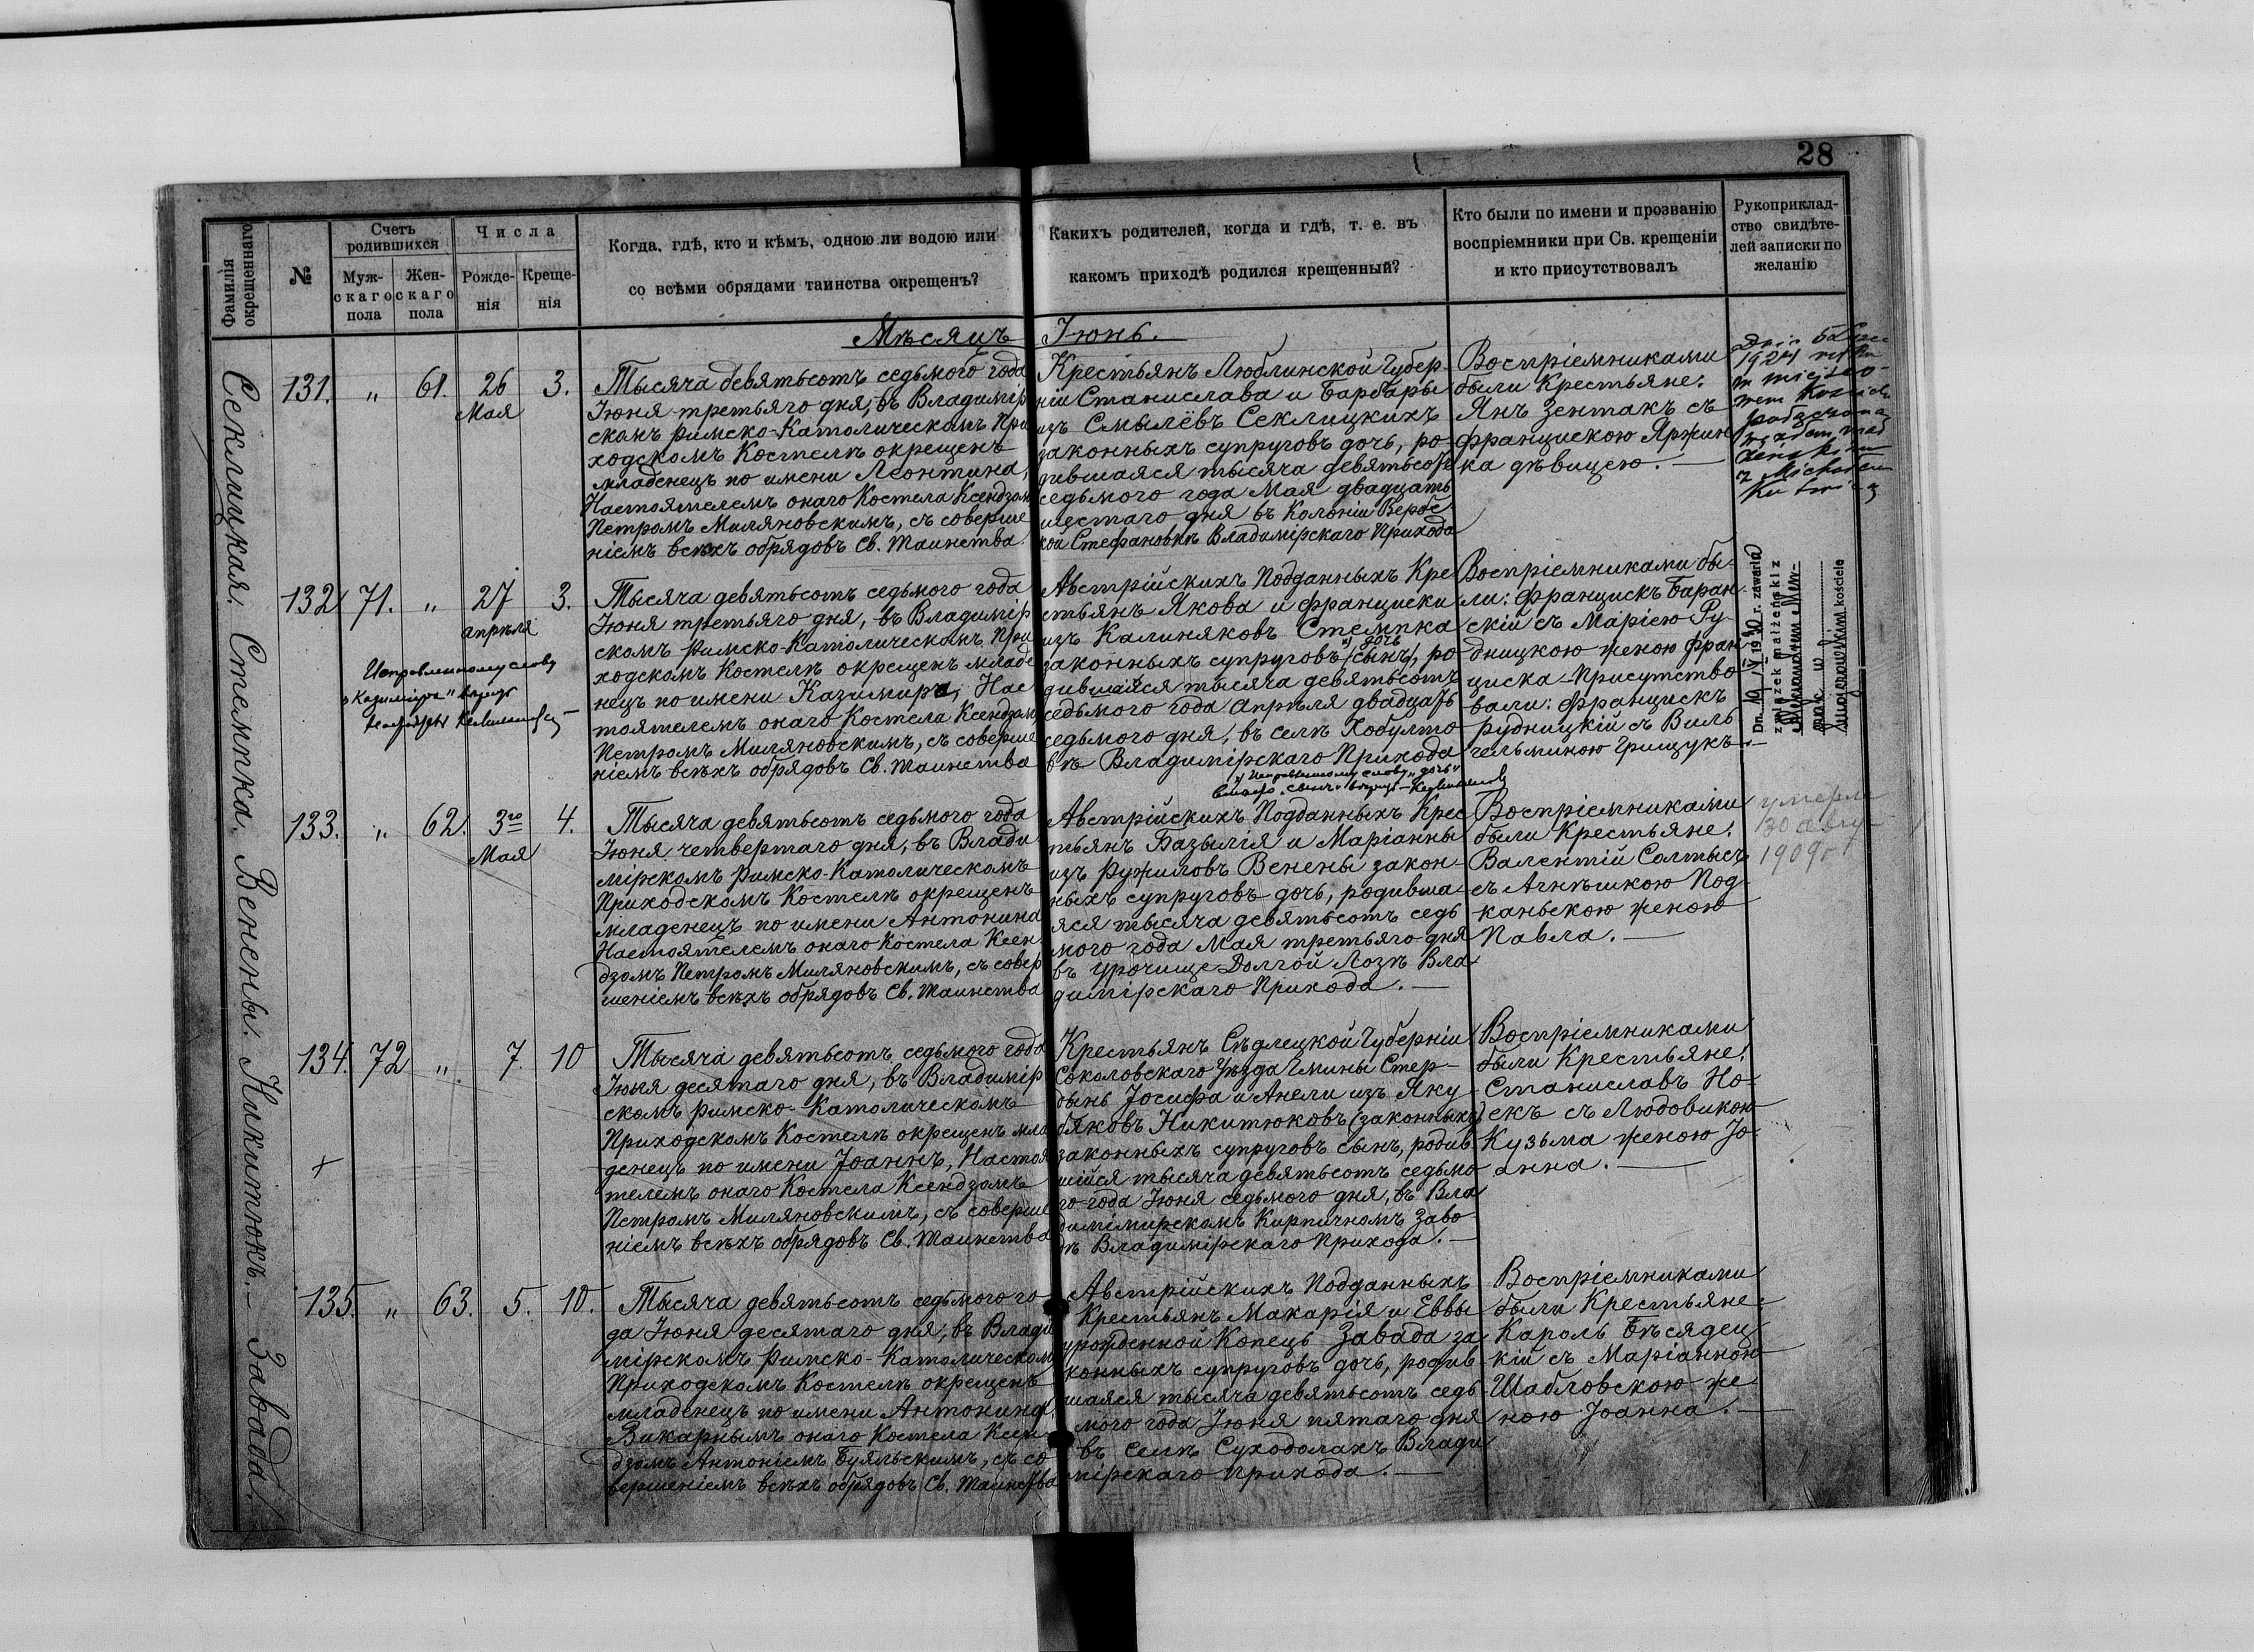 28
Фамилія окрещеннаго
№
Счетъ родившихся
Мужскаго пола
Женскаго пола
Числа
Рожденія
Крещенія
Когда, гдѣ, кто и кѣмъ, одною ли водою или
со всѣми обрядами таинства окрещенъ?
Какихъ родителей, когда и гдѣ, т. е. въ
какомъ приходѣ родился крещенный?
Кто были по имени и прозванію
воспріемники при Св. крещеніи
и кто присутствовалъ
Рукоприклад-
ство свидѣте-
лей записки по
желанію
Мѣсяцъ Іюнь.
Секлицкая. Стемпка. Венены. Никитюкъ. Завада.
131. " 61. 26 Мая 3.
Тысяча девятьсотъ седьмого года
Іюня третьяго дня, въ Владимір
скомъ Римско-Католическомъ При
ходскомъ Костелѣ окрещенъ
младенецъ по имени Леонтина,
Настоятелемъ онаго Костела Ксендзом
Петромъ Миляновскимъ, съ соверше
ніемъ всѣхъ обрядовъ Св. Таинства.
Крестьянъ Люблинской Губер-
ніи Станислава и Барбары
изъ Смылёвъ Секлицкихъ
законныхъ супруговъ дочь, ро-
дившаяся тысяча девятьсотъ
седьмого года Мая двадцать
шестаго дня въ Колоніи Вербс
кой Стефановкѣ Владимірскаго Прихода
Воспріемниками
были Крестьяне:
Янъ Зентакъ съ
Францискою Яржин
ка дѣвицею. —
1924
z Michałem
132 71. " 27 апрѣля 3.
Исправленному слову
"Казиміра" вѣрить
Тысяча девятьсотъ седьмого года
Іюня третьяго дня, въ Владимір
скомъ Римско-Католическомъ При
ходскомъ Костелѣ окрещенъ младе
нецъ по имени Казимира, Нас
тоятелемъ онаго Костела Ксендзом
Петромъ Миляновскимъ, съ соверше
ніемъ всѣхъ обрядовъ Св. Таинства
Австрійскихъ Подданныхъ Кре
стьянъ Якова и Франциски
изъ Калиняковъ Стемпка
х) дочь
законныхъ супруговъ /сынъ/, ро
дившаяся тысяча девятьсотъ
седьмого года Апрѣля двадцать
седьмого дня, въ селѣ Хобулто
вѣ Владимірскаго Прихода
х) Исправленному слову "дочь"
вмѣсто "сынъ" вѣрить
Воспріемниками бы-
ли: Францискъ Баран-
скій съ Маріею Ру-
дницкою женою Фран
циска - Присутство
вали: Францискъ
Рудницкій съ Виль
гельминою Грищукъ. —
Dn. 19/IV 1930 r. zawarła
związek małżeński z
Aleksandrem
w
kościele
133. " 62. 3го Мая 4.
Тысяча девятьсотъ седьмого года
Іюня четвертаго дня, въ Влади
мірскомъ Римско-Католическомъ
Приходскомъ Костелѣ окрещенъ
младенецъ по имени Антонина
Настоятелемъ онаго Костела Ксен
дзомъ Петромъ Миляновскимъ, съ совер
шеніемъ всѣхъ обрядовъ Св. Таинства
Австрійскихъ Подданныхъ Крес
тьянъ Базылія и Маріанны
изъ Ружиловъ Венены закон-
ныхъ супруговъ дочь, родивша-
яся тысяча девятьсотъ седь
мого года Мая третьяго дня
въ Урочище Долгой Лозѣ Вла
димірскаго Прихода. —
Воспріемниками
были Крестьяне:
Валентій Солтысъ
съ Агнѣшкою Под-
каньскою женою
Павла. —
умерла
30 авгу
1909 г
134. 72 " 7. 10
Тысяча девятьсотъ седьмого года
Іюня десятаго дня, въ Владимір
скомъ Римско-Католическомъ
Приходскомъ Костелѣ окрещенъ мла
денецъ по имени Іоаннъ, Настоя
телемъ онаго Костела Ксендзомъ
Петромъ Миляновскимъ, съ соверше
ніемъ всѣхъ обрядовъ Св. Таинства
Крестьянъ Сѣдлецкой Губерніи
Соколовскаго Уѣзда Гмины Стер-
дынь Іосифа и Анели изъ Яку
бяковъ Никитюковъ (законныхъ)
законныхъ супруговъ сынъ, родив-
шійся тысяча девятьсотъ седьмо
го года Іюня седьмого дня, въ Вла
димірскомъ Кирпичномъ Заво
дѣ Владимірскаго Прихода. —
Воспріемниками
были Крестьяне:
Станиславъ Но-
екъ съ Людовикою
Кузьма женою Іо
анна. —
135. " 63. 5. 10.
Тысяча девятьсотъ седьмого го
да Іюня десятаго дня, въ Влади
мірскомъ Римско-Католическом
Приходскомъ Костелѣ окрещенъ
младенецъ по имени Антонина,
Викарнымъ онаго Костела Ксен-
дзомъ Антоніемъ Буяльскимъ, съ со
вершеніемъ всѣхъ обрядовъ Св. Таинства
Австрійскихъ Подданныхъ
Крестьянъ Макарія и Еввы
урожденной Копецъ Завада за
конныхъ супруговъ дочь, родив
шаяся тысяча девятьсотъ седь
мого года Іюня пятаго дня
въ селѣ Суходолахъ Влади
мірскаго Прихода. —
Воспріемниками
были Крестьяне:
Кароль Бѣсядец
кій съ Маріанною
Шабловскою же
ною Іоанна. —